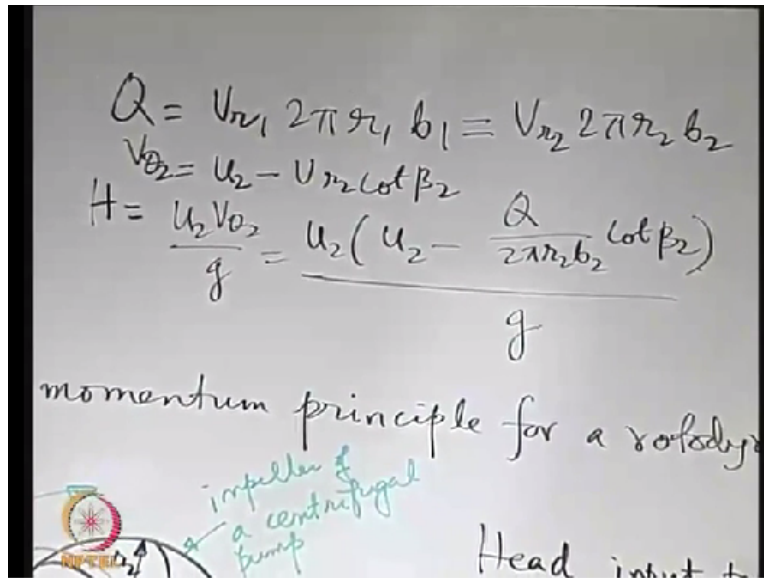 Q = Vr₁ 2πr₁ b₁ = Vr₂ 2πr₂ b₂
Vθ₂ = u₂ - Vr₂ cot β₂
H = u₂Vθ₂/g = u₂(u₂ - Q/2πr₂b₂ cot β₂)/g
momentum principle for a rotody
impeller of
a centrifugal
pump
r₂
Head input t
NPTEL